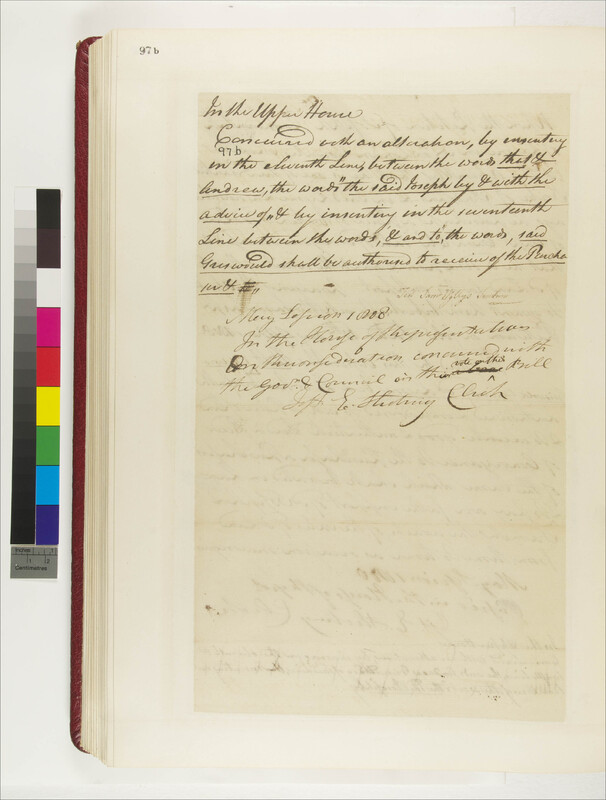 97b
In the Upper House
Concurred with an alteration, by inserting
97b
in the eleventh Line, between the words that &
Andrew, the words "the said Joseph by & with the
advice of" & by inserting in the seventeenth
Line between the words, & and to, the words, said
Griswould shall be authorised to receive of the Purcha
ser &
May Session 1808
In the House of Representatives
On Reconsideration concurred with
the Govr & Council in their vote on this Bill
Test E. Clerk
Inches
1 2
Centimetres